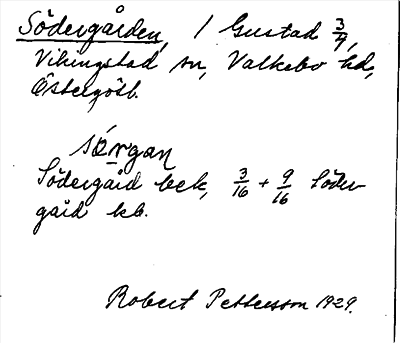 Södergården, / Gustad 3/4,
Vikingstad sn, Valkebo hd,
Östergötl.
sǿrgan
Södergård beck, 3/16 + 9/16 Söder-
gård kb.
Robert Pettersson 1929.